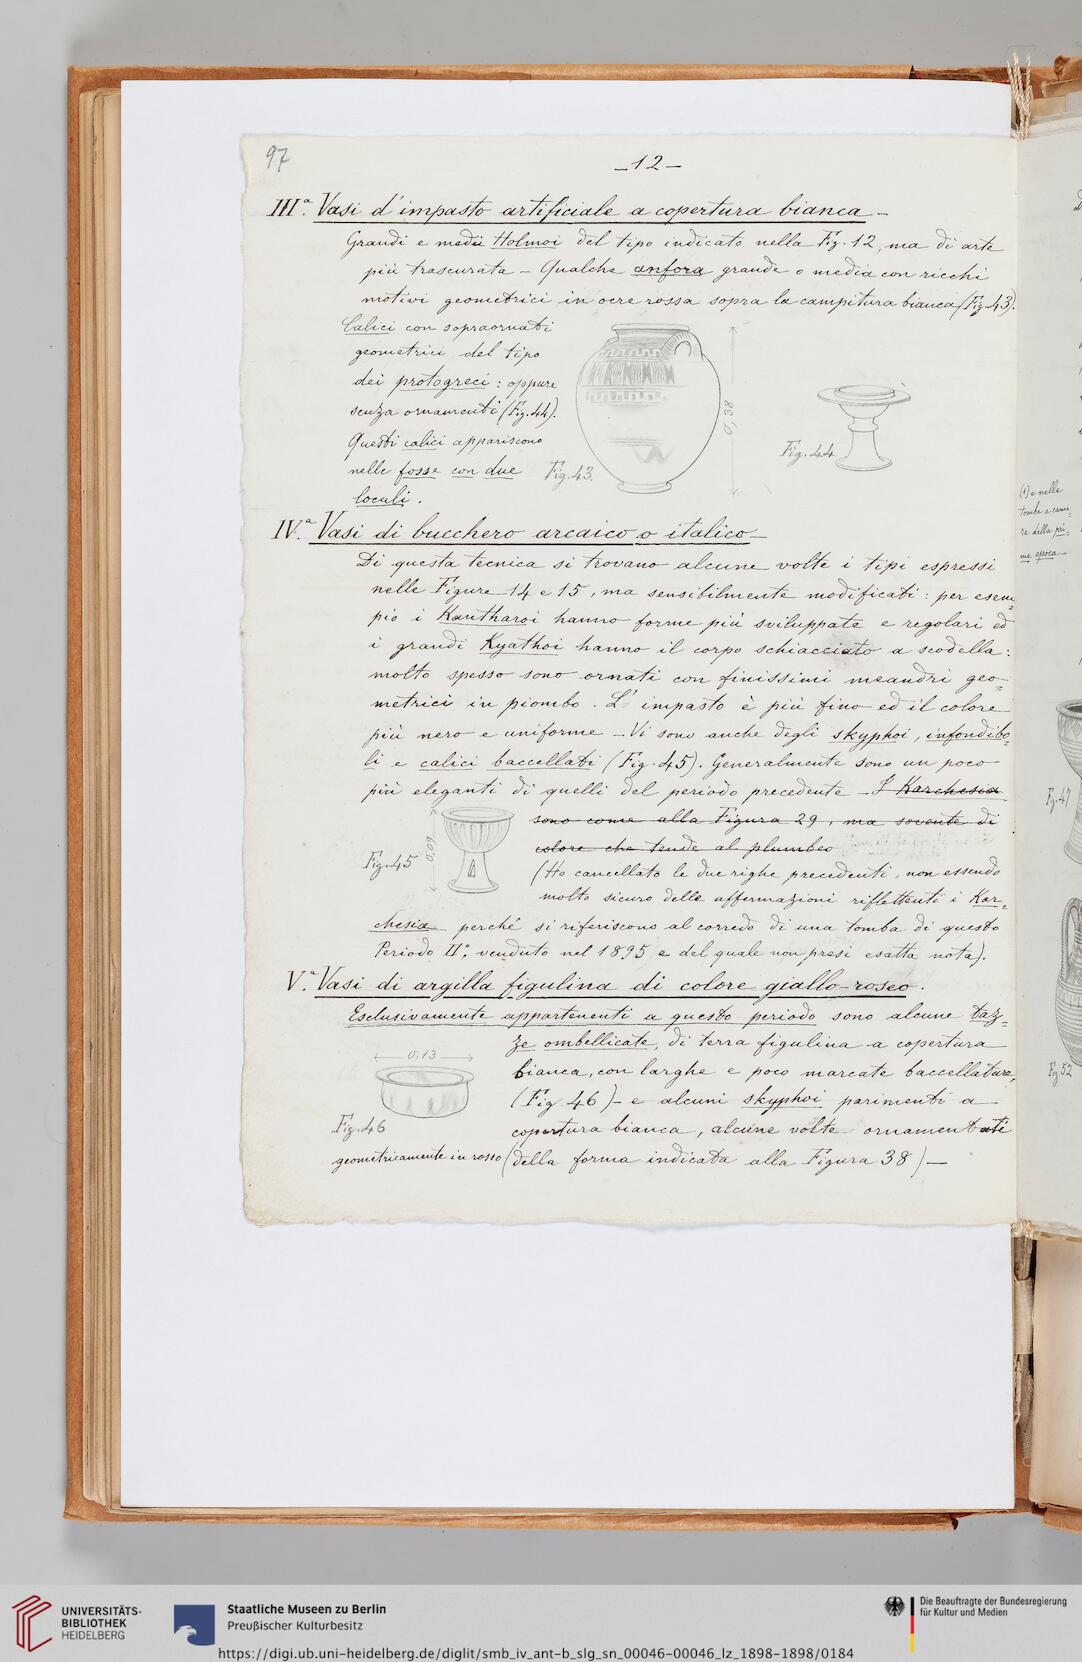 97
—12—
III.ª Vasi d'impasto artificiale a copertura bianca —
Grandi e medii Holmoi del tipo indicato nella Fig. 12, ma di arte
più trascurata — Qualche anfora grande o media con ricchi
motivi geometrici in ocre rossa sopra la campitura bianca (Fig. 43).
Calici con sopraornati
geometrici del tipo
dei protogreci: oppure
senza ornamenti (Fig. 44).
Questi calici appariscono
nelle fosse con due
loculi.
Fig. 43.
0,38
Fig. 44
IV.ª Vasi di bucchero arcaico o italico —
Di questa tecnica si trovano alcune volte i tipi espressi
nelle Figure 14 e 15, ma sensibilmente modificati: per esem=
pio i Kantharoi hanno forme più sviluppate e regolari ed
i grandi Kyathoi hanno il corpo schiacciato a scodella:
molto spesso sono ornati con finissimi meandri geo=
metrici in piombo. L'impasto è più fino ed il colore
più nero e uniforme — Vi sono anche degli skyphoi, infondibo=
li e calici baccellati (Fig. 45). Generalmente sono un poco
più eleganti di quelli del periodo precedente — I Karchesia
sono come alla Figura 29, ma sovente di
colore che tende al plumbeo
Fig. 45
0,09
(Ho cancellato le due righe precedenti, non essendo
molto sicuro delle affermazioni riflettenti i Kar=
chesia perché si riferiscono al corredo di una tomba di questo
Periodo II°, venduto nel 1895 e del quale non presi esatta nota).
V.ª Vasi di argilla figulina di colore giallo-roseo.
Esclusivamente appartenenti a questo periodo sono alcune taz=
ze ombellicate, di terra figulina a copertura
bianca, con larghe e poco marcate baccellature,
(Fig. 46) — e alcuni skyphoi parimenti a
copertura bianca, alcune volte ornamentati
geometricamente in rosso (della forma indicata alla Figura 38) —
0,13
Fig. 46
(1) e nelle
tombe a came=
ra della pri=
ma epoca —
Fig. 47
Fig. 52
UNIVERSITÄTS-
BIBLIOTHEK
HEIDELBERG
Staatliche Museen zu Berlin
Preußischer Kulturbesitz
Die Beauftragte der Bundesregierung
für Kultur und Medien
https://digi.ub.uni-heidelberg.de/diglit/smb_iv_ant-b_slg_sn_00046-00046_lz_1898-1898/0184